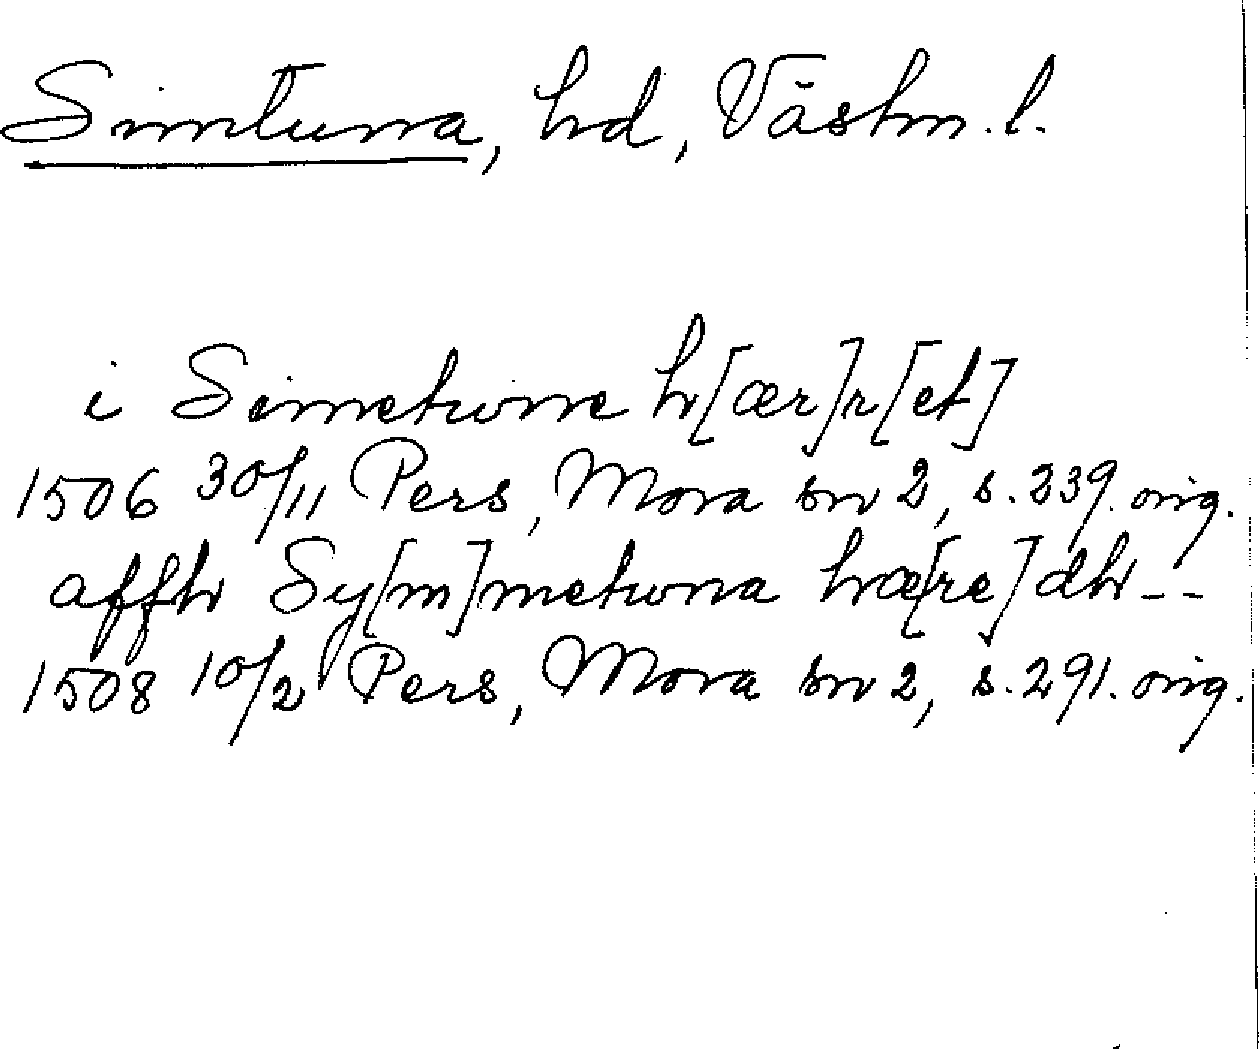 Simtuna, hd, Västm. l.
i Simetwne h[ær]r[et]
1506 30/11 Pers, Mora sn 2, s. 239. orig.
affh Sy[m]metwna hæ[re]dh--
1508 10/2 Pers, Mora sn 2, s. 291. orig.